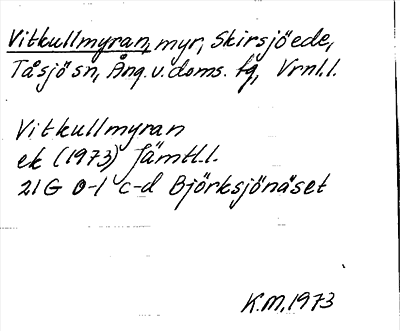 Vitkullmyran, myr, Skirsjöede,
Tåsjö sn, Ång. v. doms. fg, Vrnl.l.
Vitkullmyran
ek (1973) Jämtl.l.
21G 0-1 c-d Björksjönäset
K.M. 1973